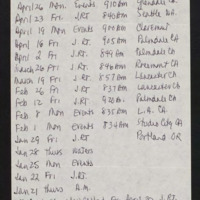 April 26 Mon Events 910 AM Glendale CA
April 23 Fri J.RT. 840AM Seattle WA.
April 19 Mon Events 900AM Claremont
April 16 Fri J.RT. 905AM Palmdale CA
April 2 Fri J.RT. 849AM Palmdale CA
March 26 Fri J.RT. 840AM Rosemont CA
March 19 Fri J.RT. 857AM Lancaster CA
Feb 26 Fri J.RT 837AM Lancaster CA
Feb 12 Fri J.RT. 920AM Palmdale CA
Feb 8 Mon Events 835AM L.A. CA.
Feb 1 Mon Events 834AM Studio City CA
Jan 29 Fri J.RT. Portland OR
Jan 28 Thurs
Jan 25 Mon Events
Jan 22 Fri J.RT.
Jan 21 Thurs A.M.
April 30 J.RT.